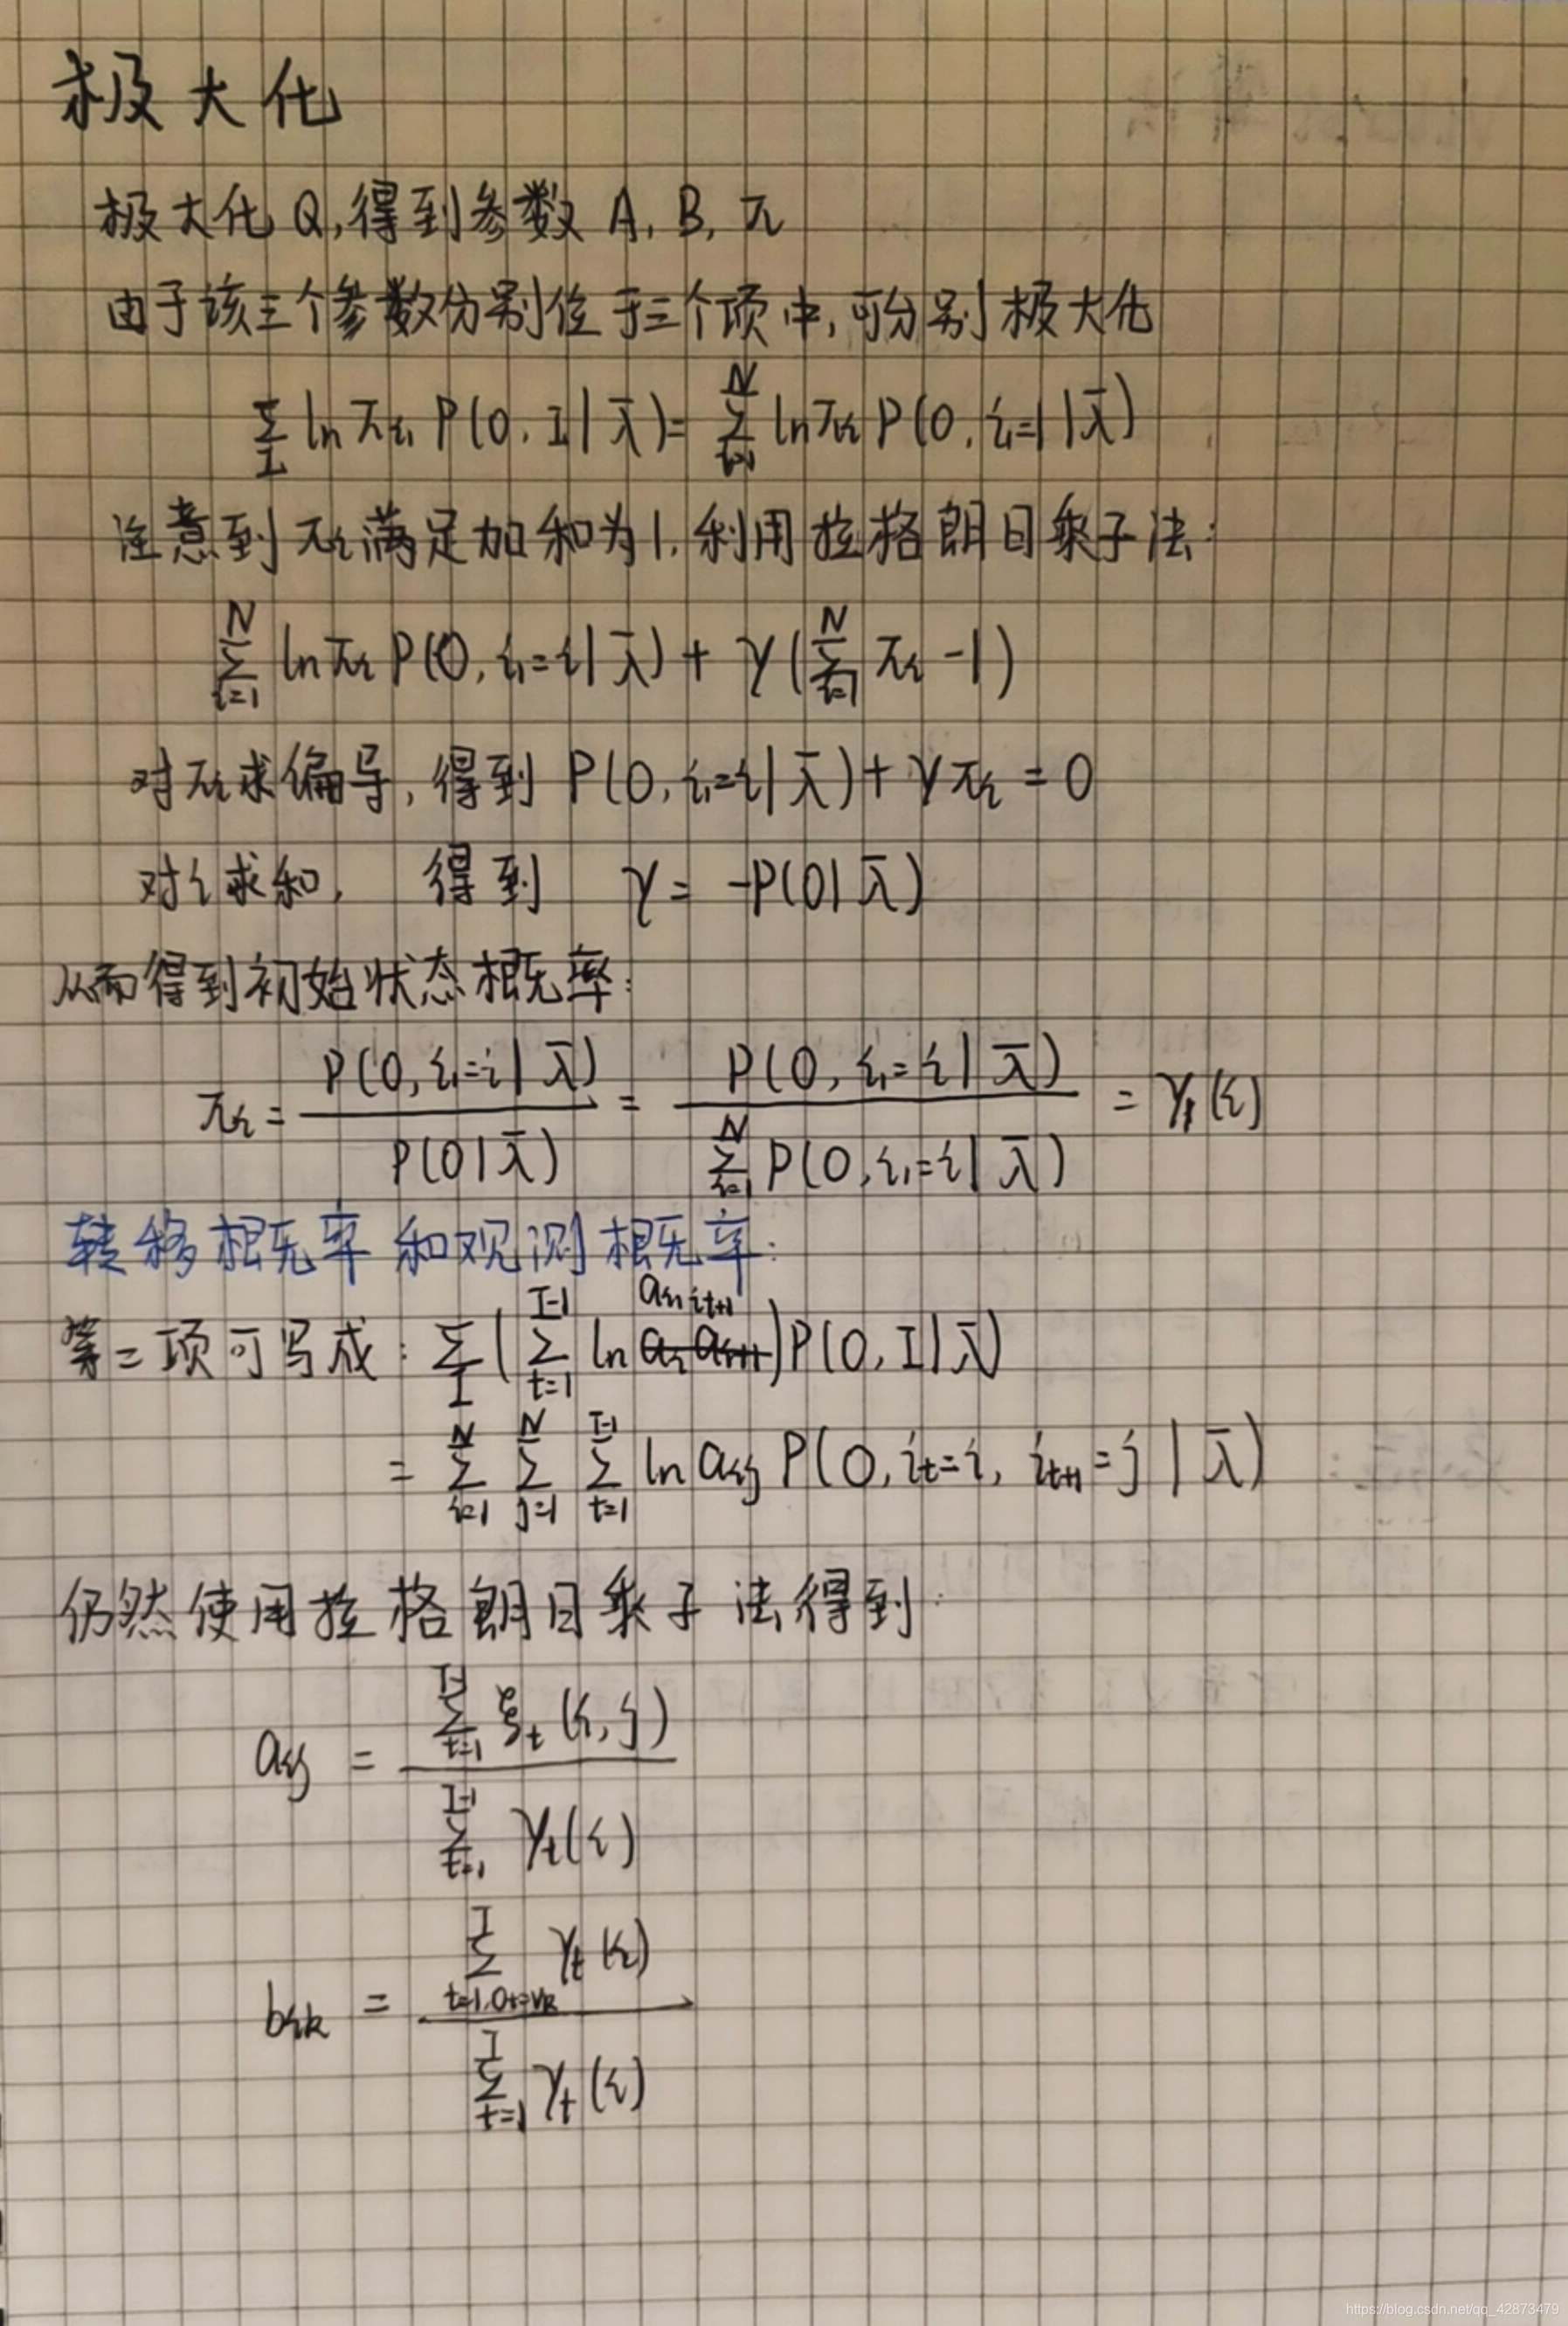 极大化
极大化Q,得到参数 A, B, π
由于该三个参数分别位于三个项中,可分别极大化
∑_I ln π_{i₁} P(O, I | λ̄) = ∑_{i=1}^{N} ln π_i P(O, i₁=1 | λ̄)
注意到 π_i 满足加和为1, 利用拉格朗日乘子法:
∑_{i=1}^{N} ln π_i P(O, i₁=i | λ̄) + γ(∑_{i=1}^{N} π_i -1)
对π_i求偏导, 得到 P(O, i₁=i | λ̄) + γπ_i = 0
对i求和, 得到 γ = -P(O | λ̄)
从而得到初始状态概率:
π_i = P(O, i₁=i | λ̄) / P(O | λ̄) = P(O, i₁=i | λ̄) / ∑_{i=1}^{N} P(O, i₁=i | λ̄) = γ₁(i)
转移概率和观测概率:
第二项可写成: ∑_I (∑_{t=1}^{T-1} ln a_{i_t i_{t+1}}) P(O, I | λ̄)
= ∑_{i=1}^{N} ∑_{j=1}^{N} ∑_{t=1}^{T-1} ln a_{ij} P(O, i_t=i, i_{t+1}=j | λ̄)
仍然使用拉格朗日乘子法得到:
a_{ij} = ∑_{t=1}^{T-1} ξ_t(i,j) / ∑_{t=1}^{T-1} γ_t(i)
b_{ik} = ∑_{t=1,O_t=v_k}^{T} γ_t(i) / ∑_{t=1}^{T} γ_t(i)
https://blog.csdn.net/qq_42873479